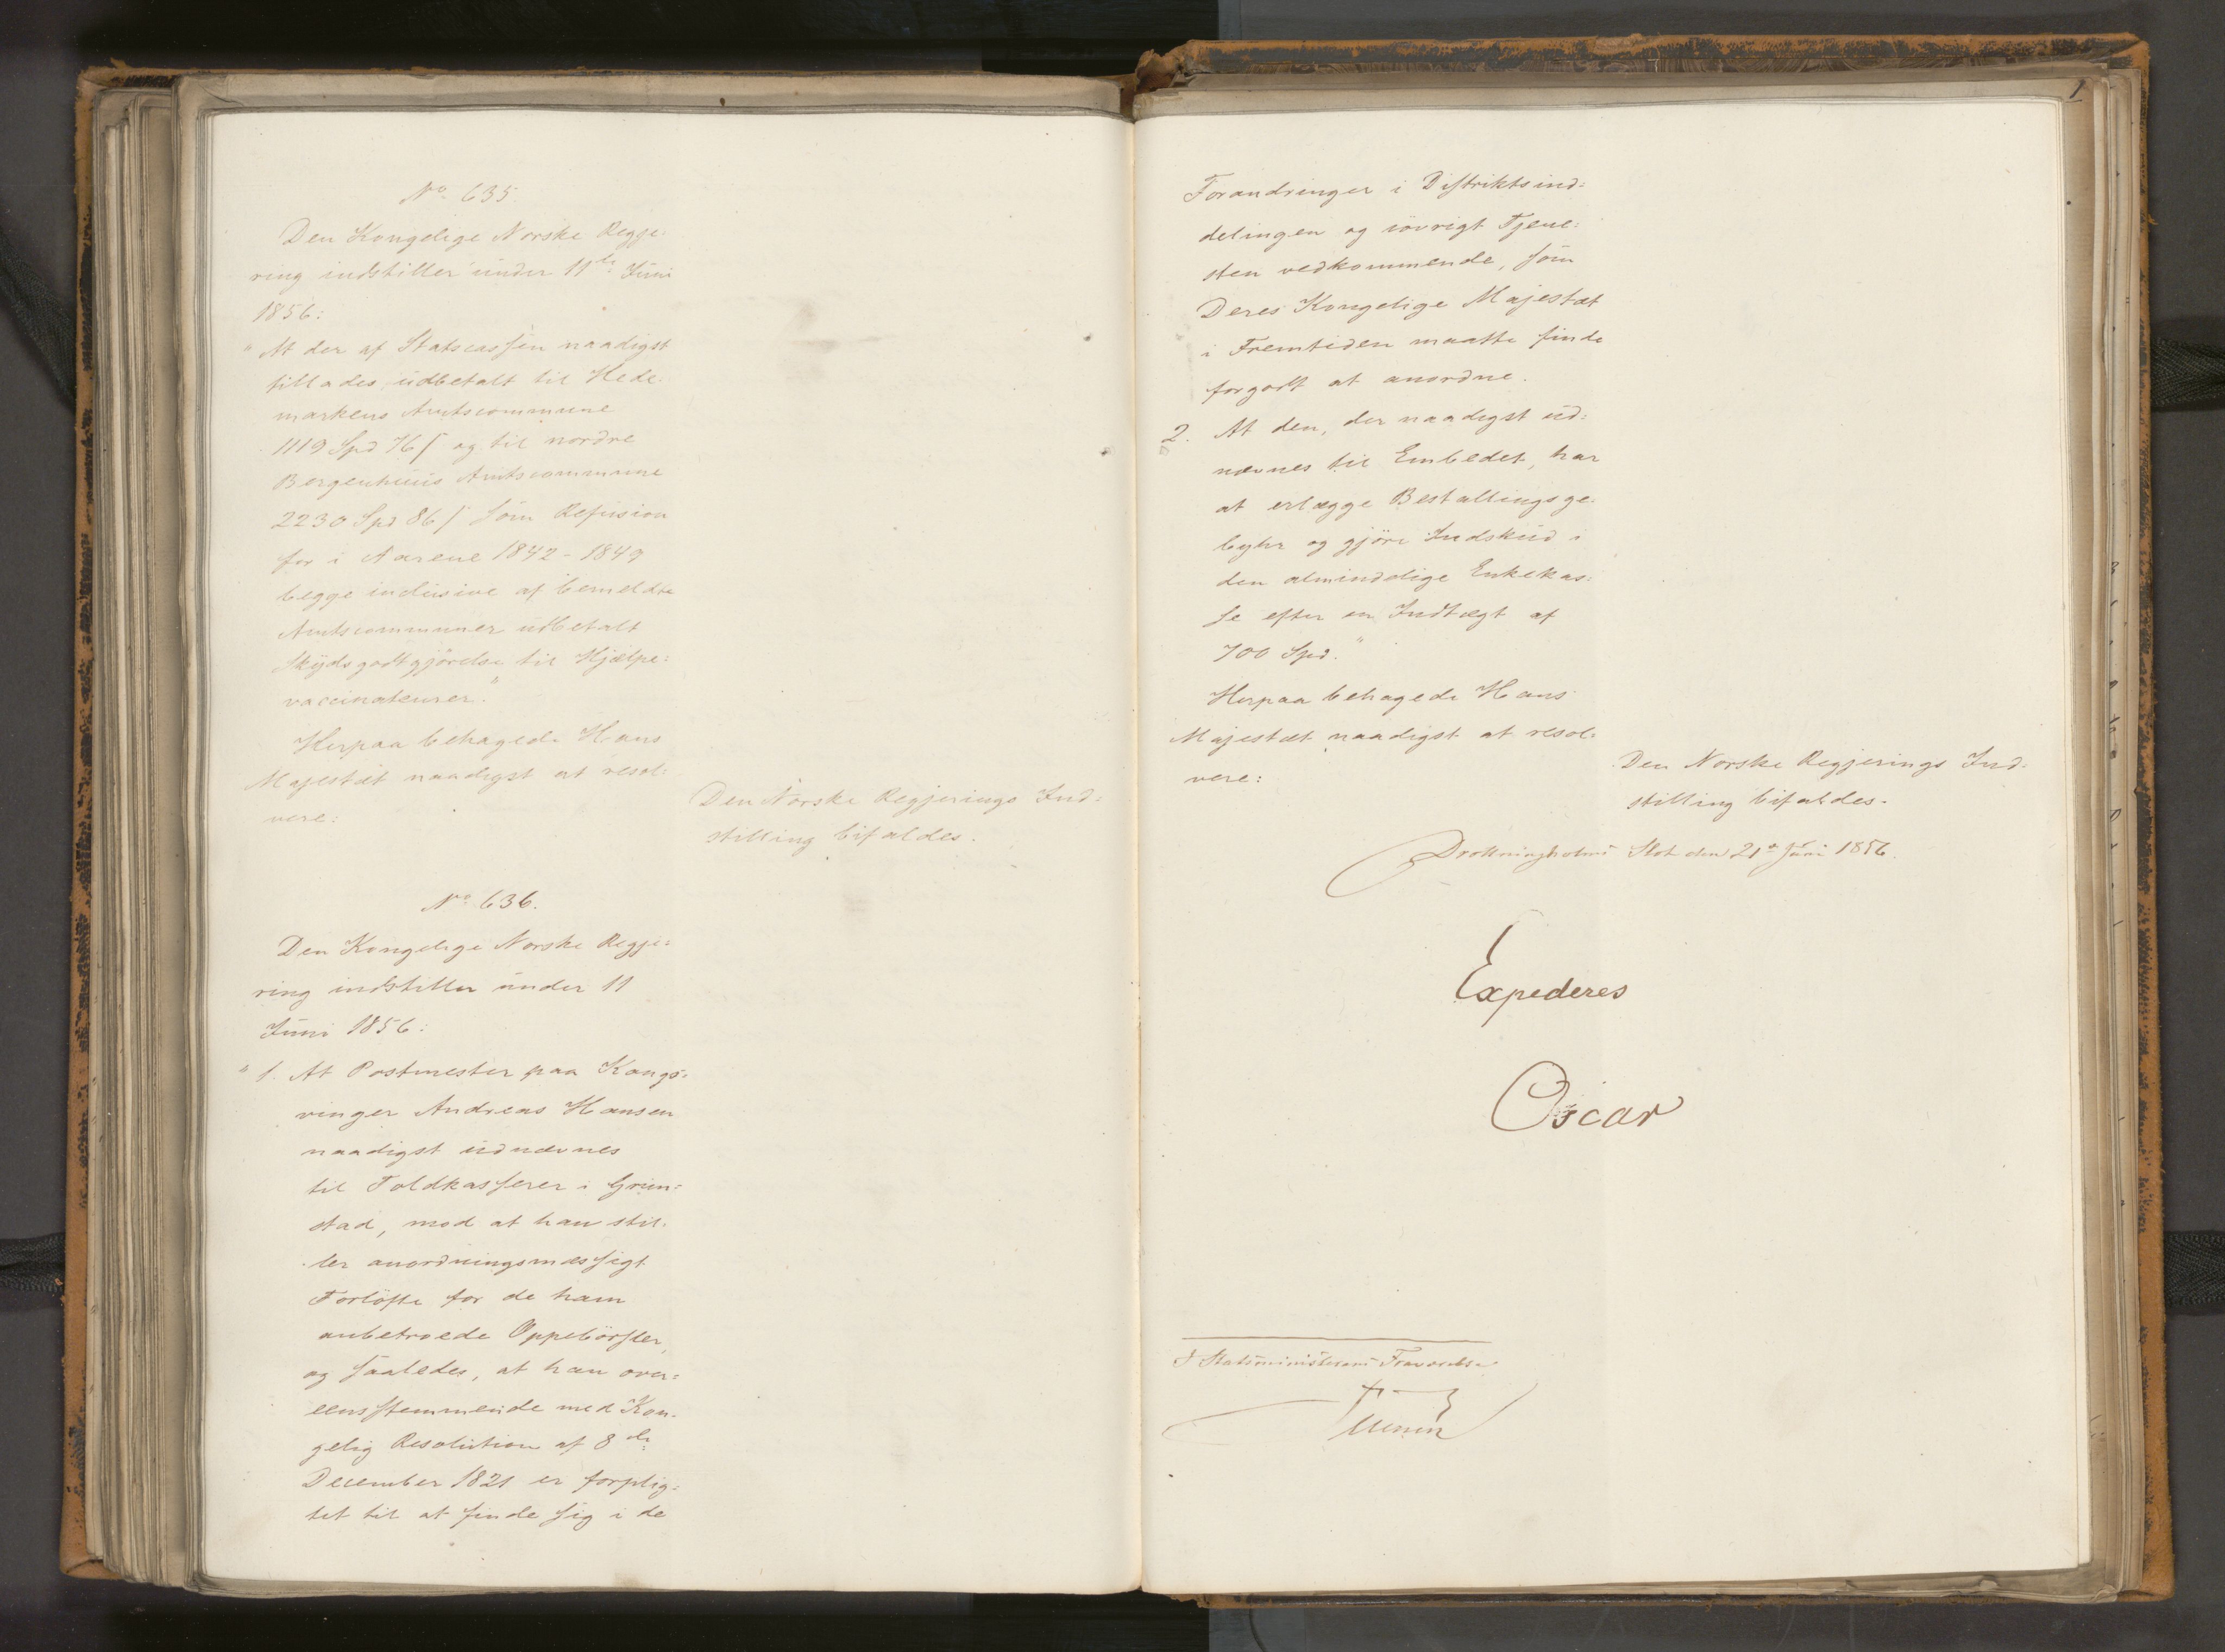 No 635
Den Kongelige Norske Regje:
ring indstiller under 11te Juni
1856:
"At der af Statscassen naadigst
tillades udbetalt til Hede-
markens Amtscommune
1119 Spd 76 ſ og til nordre
Bergenhuus Amtscommune
2230 Spd 86 ſ som Refusion
for i Aarene 1842-1849
begge inclusive af bemeldte
Amtscommuner udbetalt
Skydsgodtgjörelse til Hjælpe:
vaccinateurer."
Herpaa behagede Hans
Majestæt naadigst at resol:
vere:
Den Norske Regjerings Ind:
stilling bifaldes.
No 636.
Den Kongelige Norske Regje:
ring indstiller under 11
Juni 1856:
"1. At Postmester paa Kongs-
vinger Andreas Hansen
naadigst udnævnes
til Toldkasserer i Grim:
stad, mod at han stil-
ler anordningsmæssigt
Forlöfte for de ham
anbetroede Oppebörsler,
og saaledes, at han over:
eensstemmende med Kon-
gelig Resolution af 8de
December 1821 er forplig:
tet til at finde sig i de
1
Forandringer i Distriktsind:
delingen og iövrigt Tjene:
sten vedkommende, som
Deres Kongelige Majestæt
i Fremtiden maatte finde
forgodt at anordne.
2. At den, der naadigst ud:
nævnes til Embedet, har
at erlægge Bestallingsge-
byhr og gjöre Indskud i
den almindelige Enkekas:
se efter en Indtægt af
700 Spd."
Herpaa behagede Hans
Majestæt naadigst at resol:
vere:
Den Norske Regjerings Ind:
stilling bifaldes.
Drottningholms Slot den 21e Juni 1856.
Expederes
Oscar
I Statsministerens Fraværelse